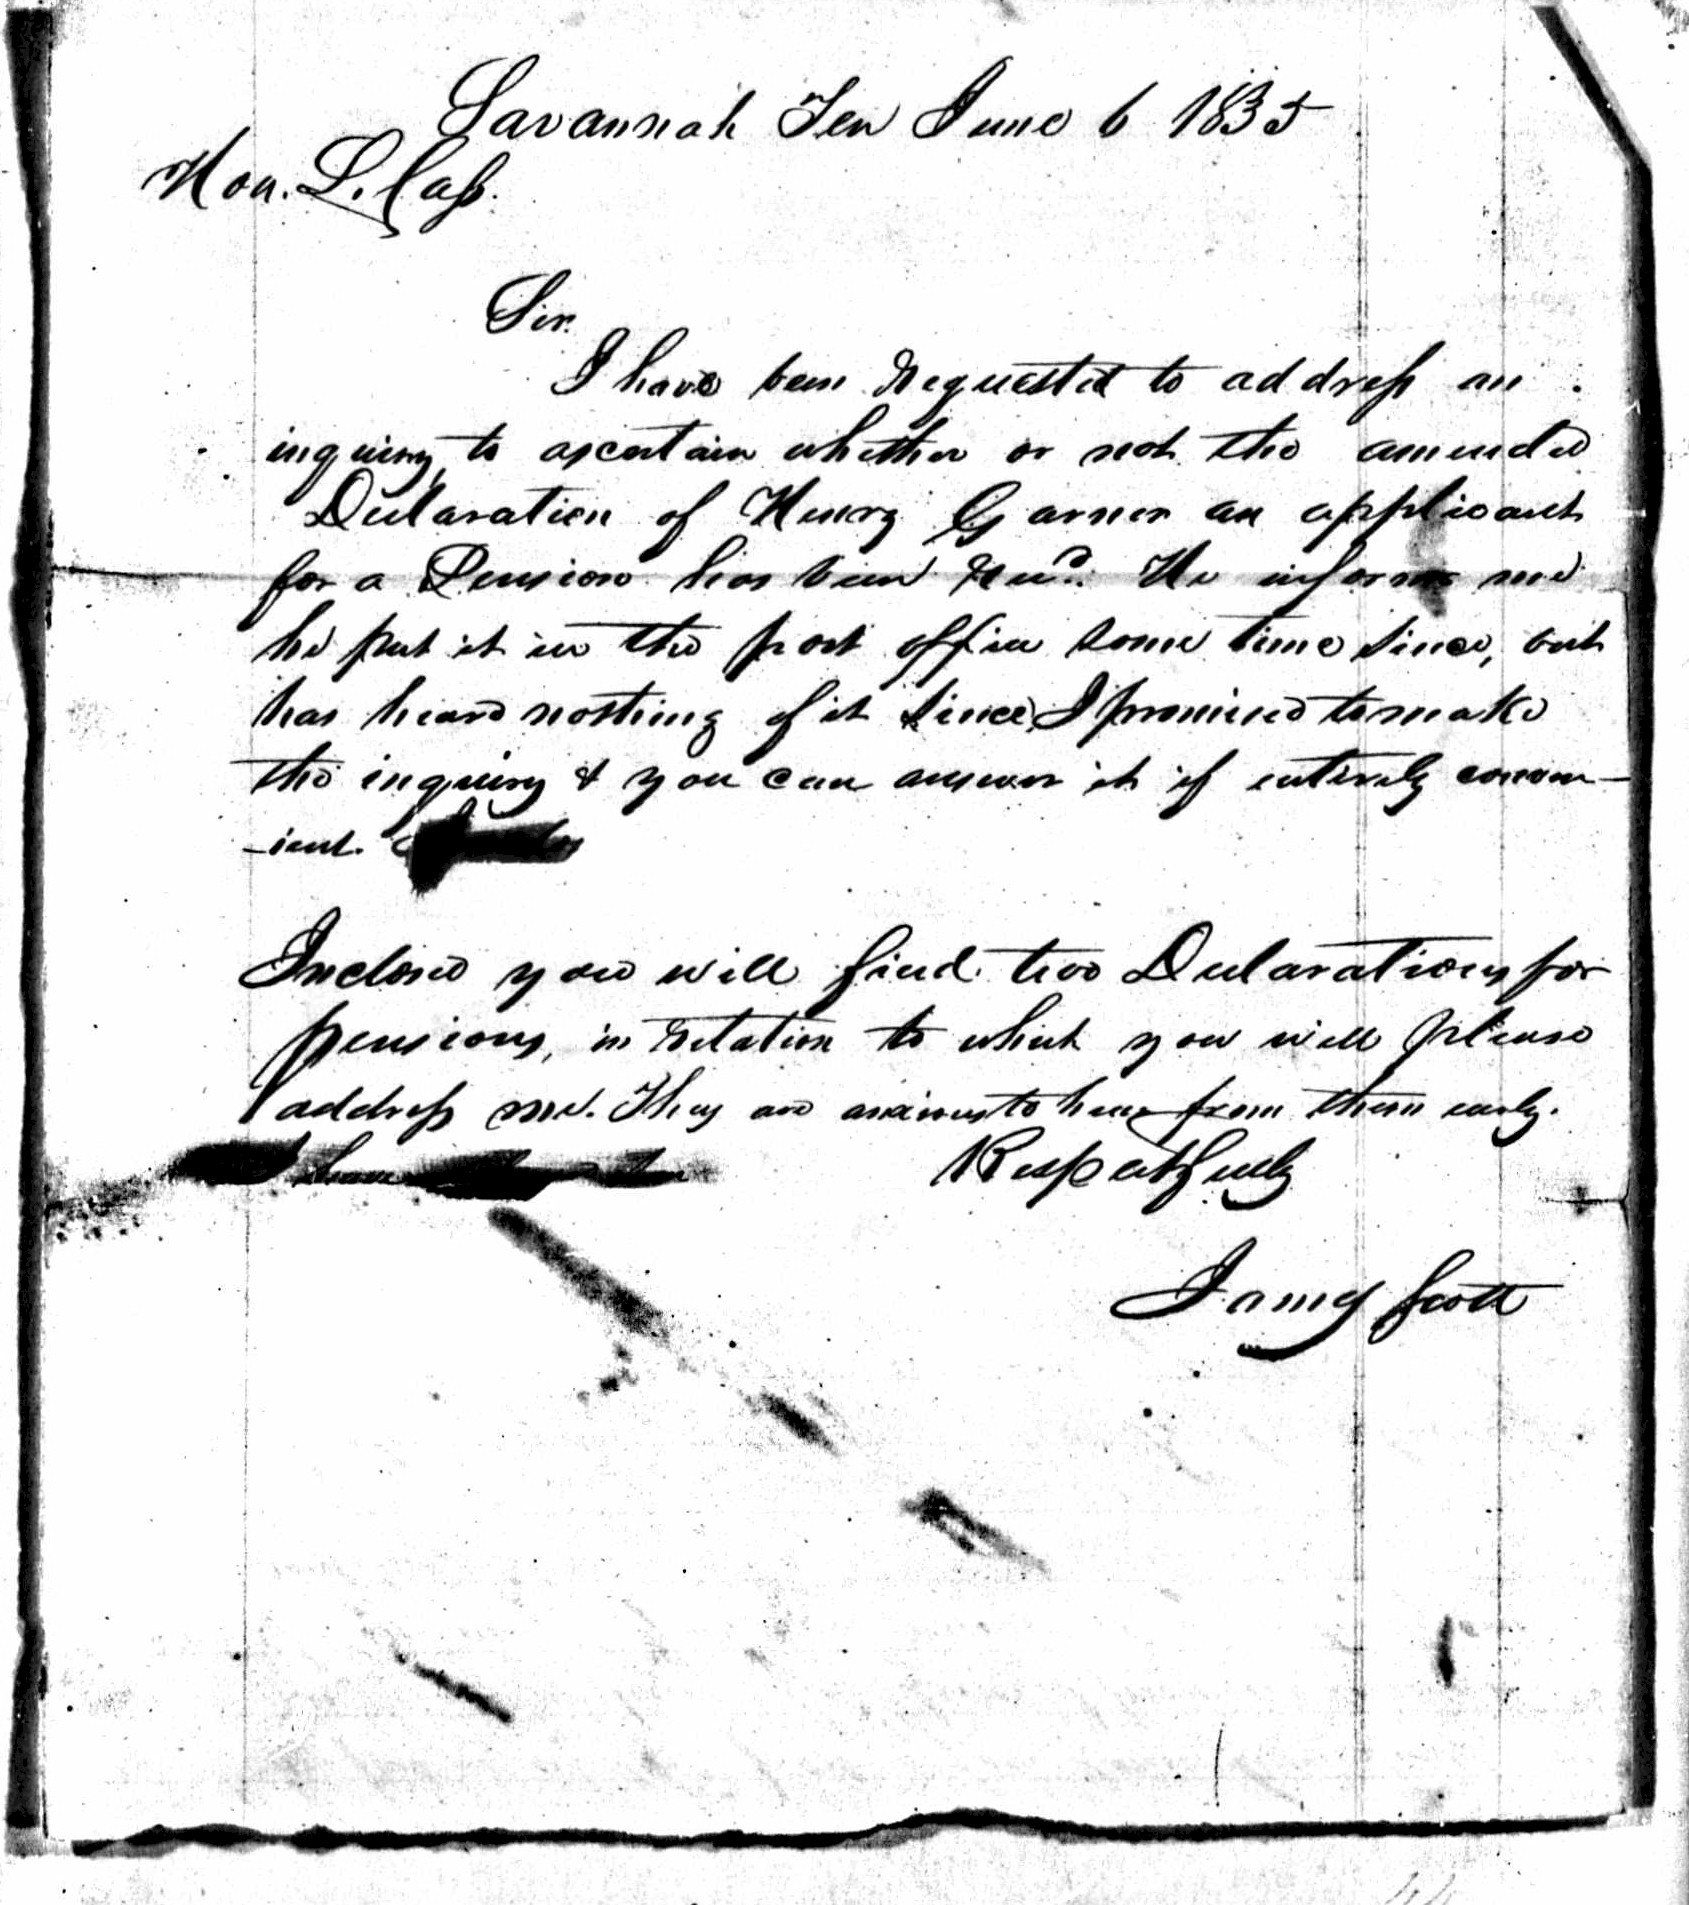 Savannah Ten June 6 1835
Hon. L. Cass.
Sir.
I have been requested to address an
inquiry, to ascertain whether or not the amended
Declaration of Henry Garner an applicant
for a Pension has been Recd. He informs me
he put it in the post office some time since, but
has heard nothing of it since, I promised to make
the inquiry & you can answer it if entirely conven-
-ient.
Inclosed you will find two Declarations for
pensions, in relation to which you will please
address me. They are anxious to hear from them early.
Respectfully
James Scott